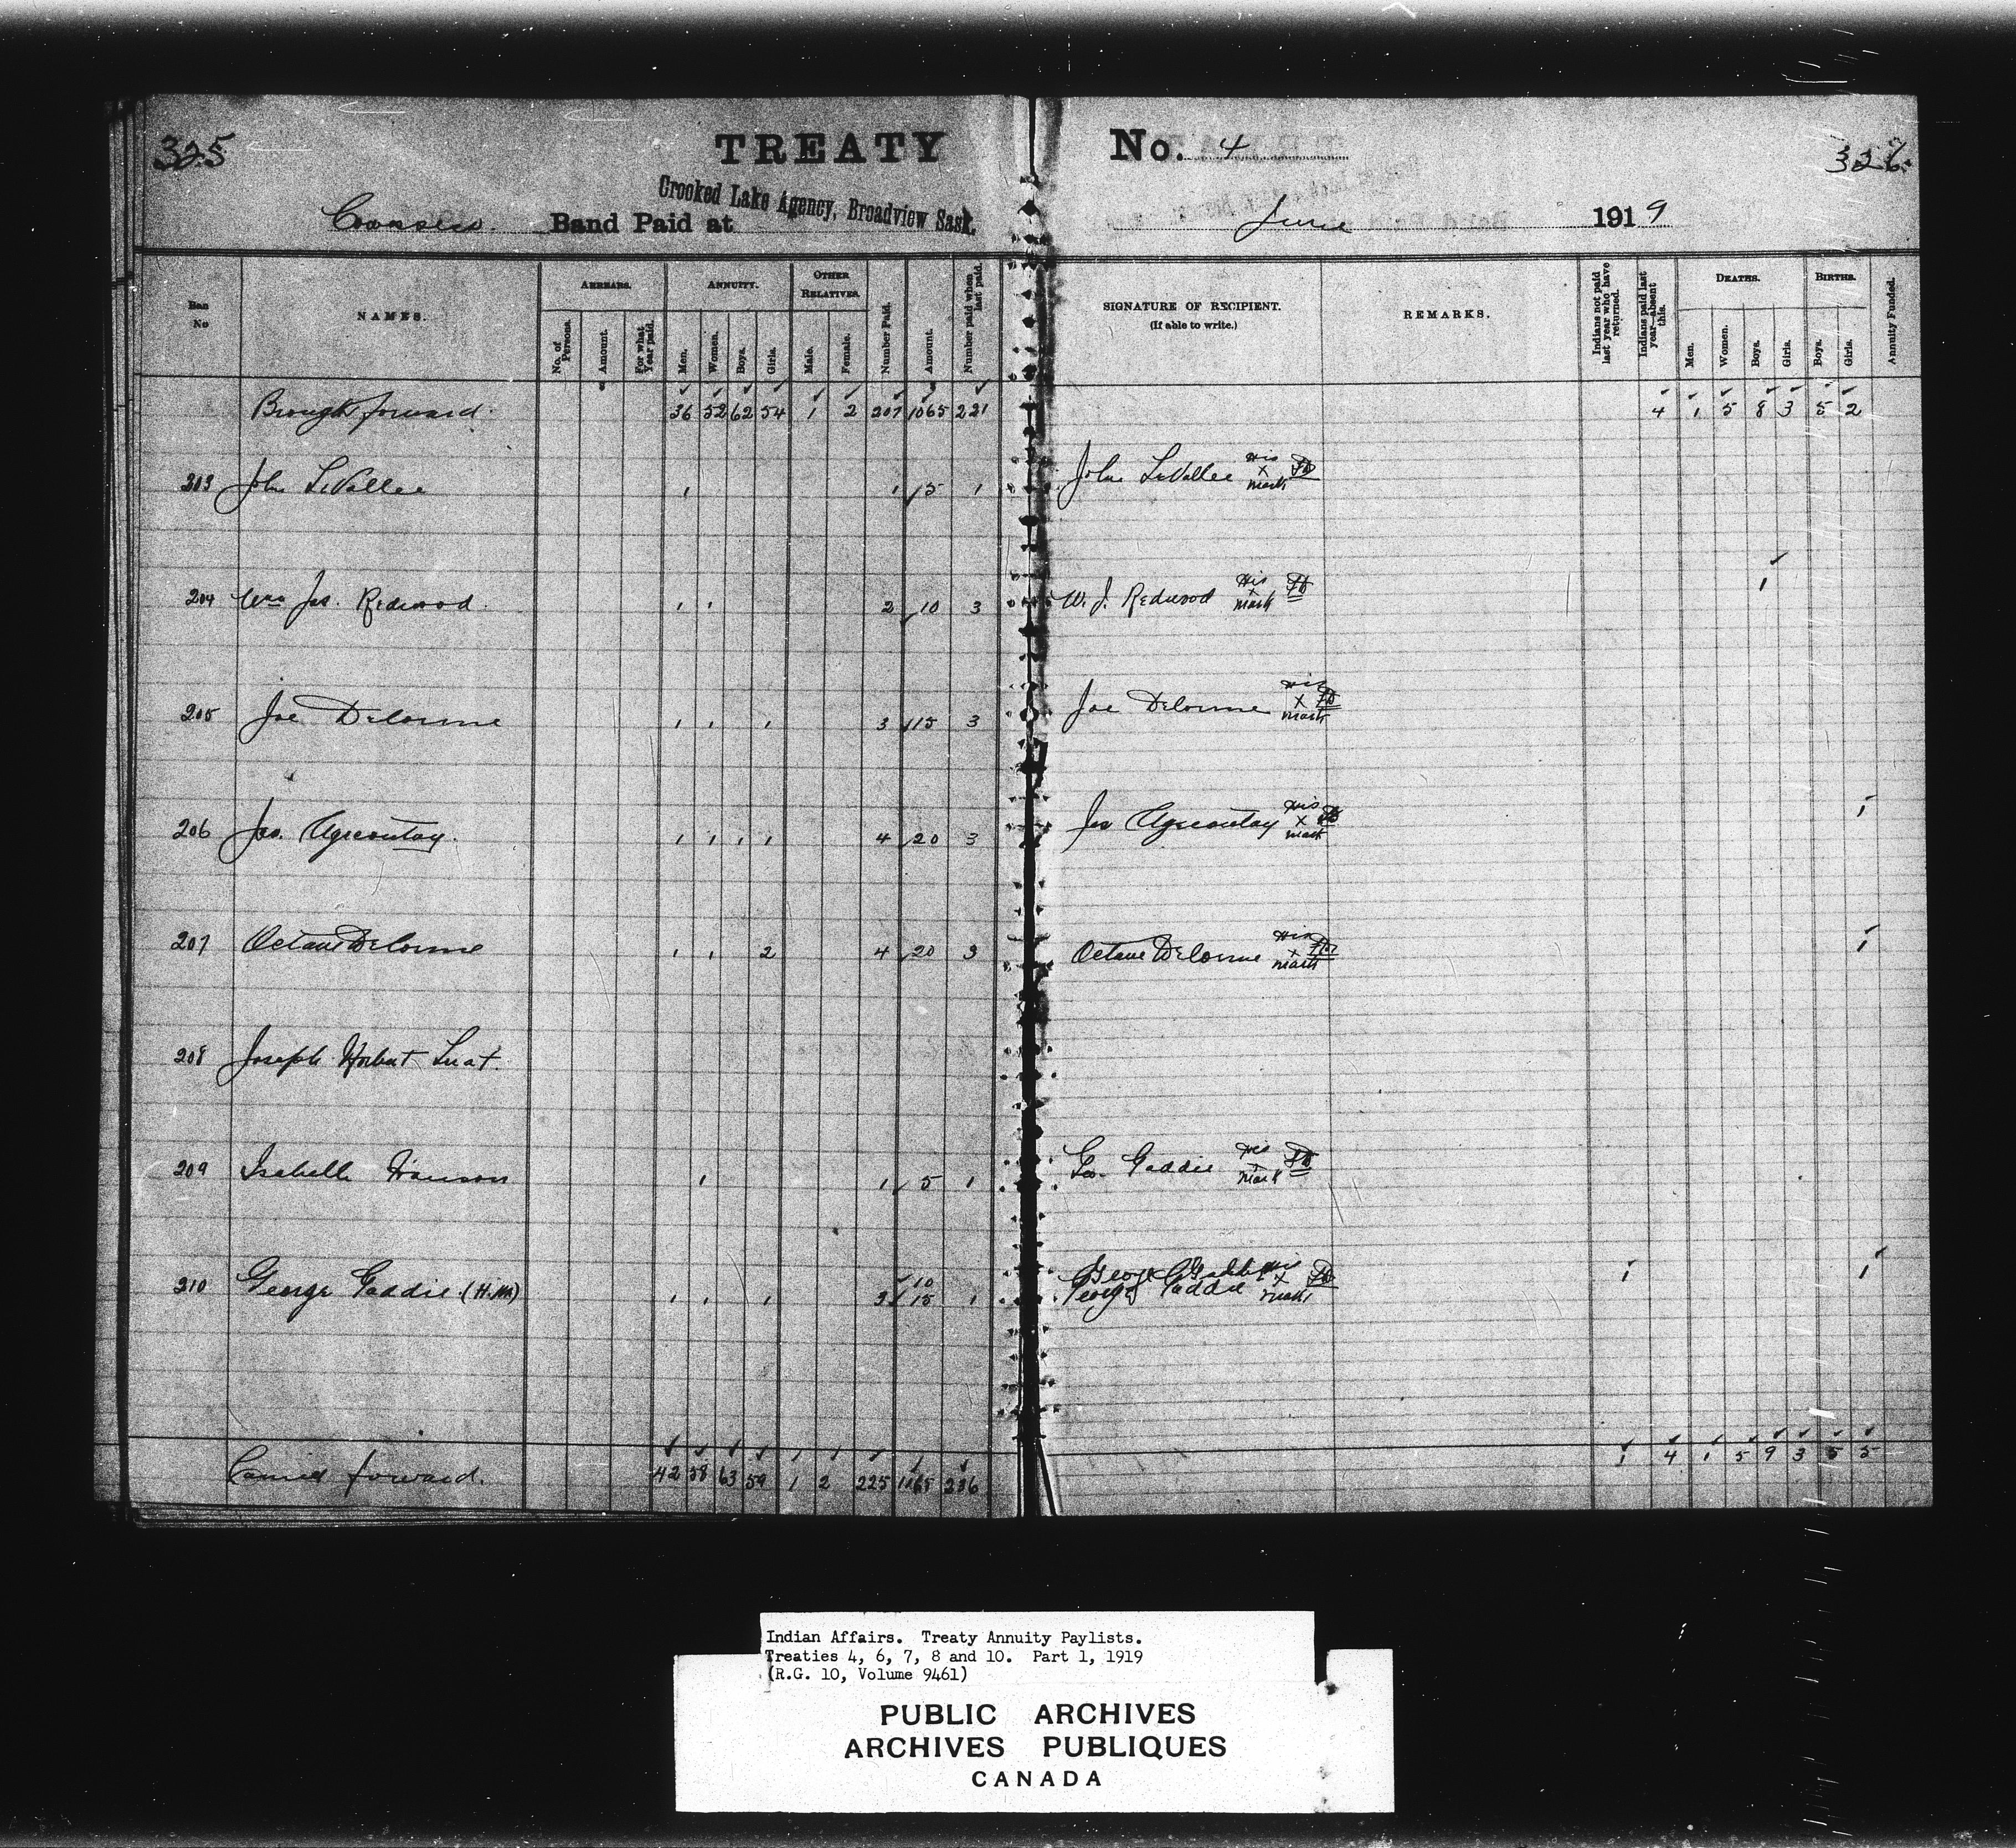 325
TREATY No. 4
326
Band Paid at Crooked Lake Agency, Broadview Sask. June 1919
Ban No
NAMES.
ARREARS.
No. of Persons.
Amount.
For what Year paid.
ANNUITY.
Men.
Women.
Boys.
Girls.
OTHER RELATIVES.
Male.
Female.
Number Paid.
Amount.
Number paid when last paid.
SIGNATURE OF RECIPIENT.
(If able to write.)
REMARKS.
Indians not paid last year who have returned.
Indians paid last year—absent this.
DEATHS.
Men.
Women.
Boys.
Girls.
BIRTHS.
Boys.
Girls.
Annuity Funded.
Brought forward. 36 52 62 54 1 2 207 1065 221 4 1 5 8 3 5 2
203 John LeVallee 1 1 5 1 John LeVallee His x mark
204 Wm Jas. Redwood. 1 1 2 10 3 W. J. Redwood His x mark 1
205 Joe Delorme 1 1 1 3 15 3 Joe Delorme His x mark
206 Jos. Agecoutay. 1 1 1 1 4 20 3 Jos Agecoutay His x mark 1
207 Octave Delorme 1 1 2 4 20 3 Octave Delorme His x mark 1
208 Joseph Norbert
209 Isabelle 1 1 5 1 Geo. Gaddie His x mark
210 George Gaddie (H.M) 1 1 1 3 10 15 1 George Gaddie His x mark 1 1
Carried forward. 42 58 63 59 1 2 225 1165 236 1 4 1 5 9 3 5 5
Indian Affairs. Treaty Annuity Paylists.
Treaties 4, 6, 7, 8 and 10. Part 1, 1919
(R.G. 10, Volume 9461)
PUBLIC ARCHIVES
ARCHIVES PUBLIQUES
CANADA